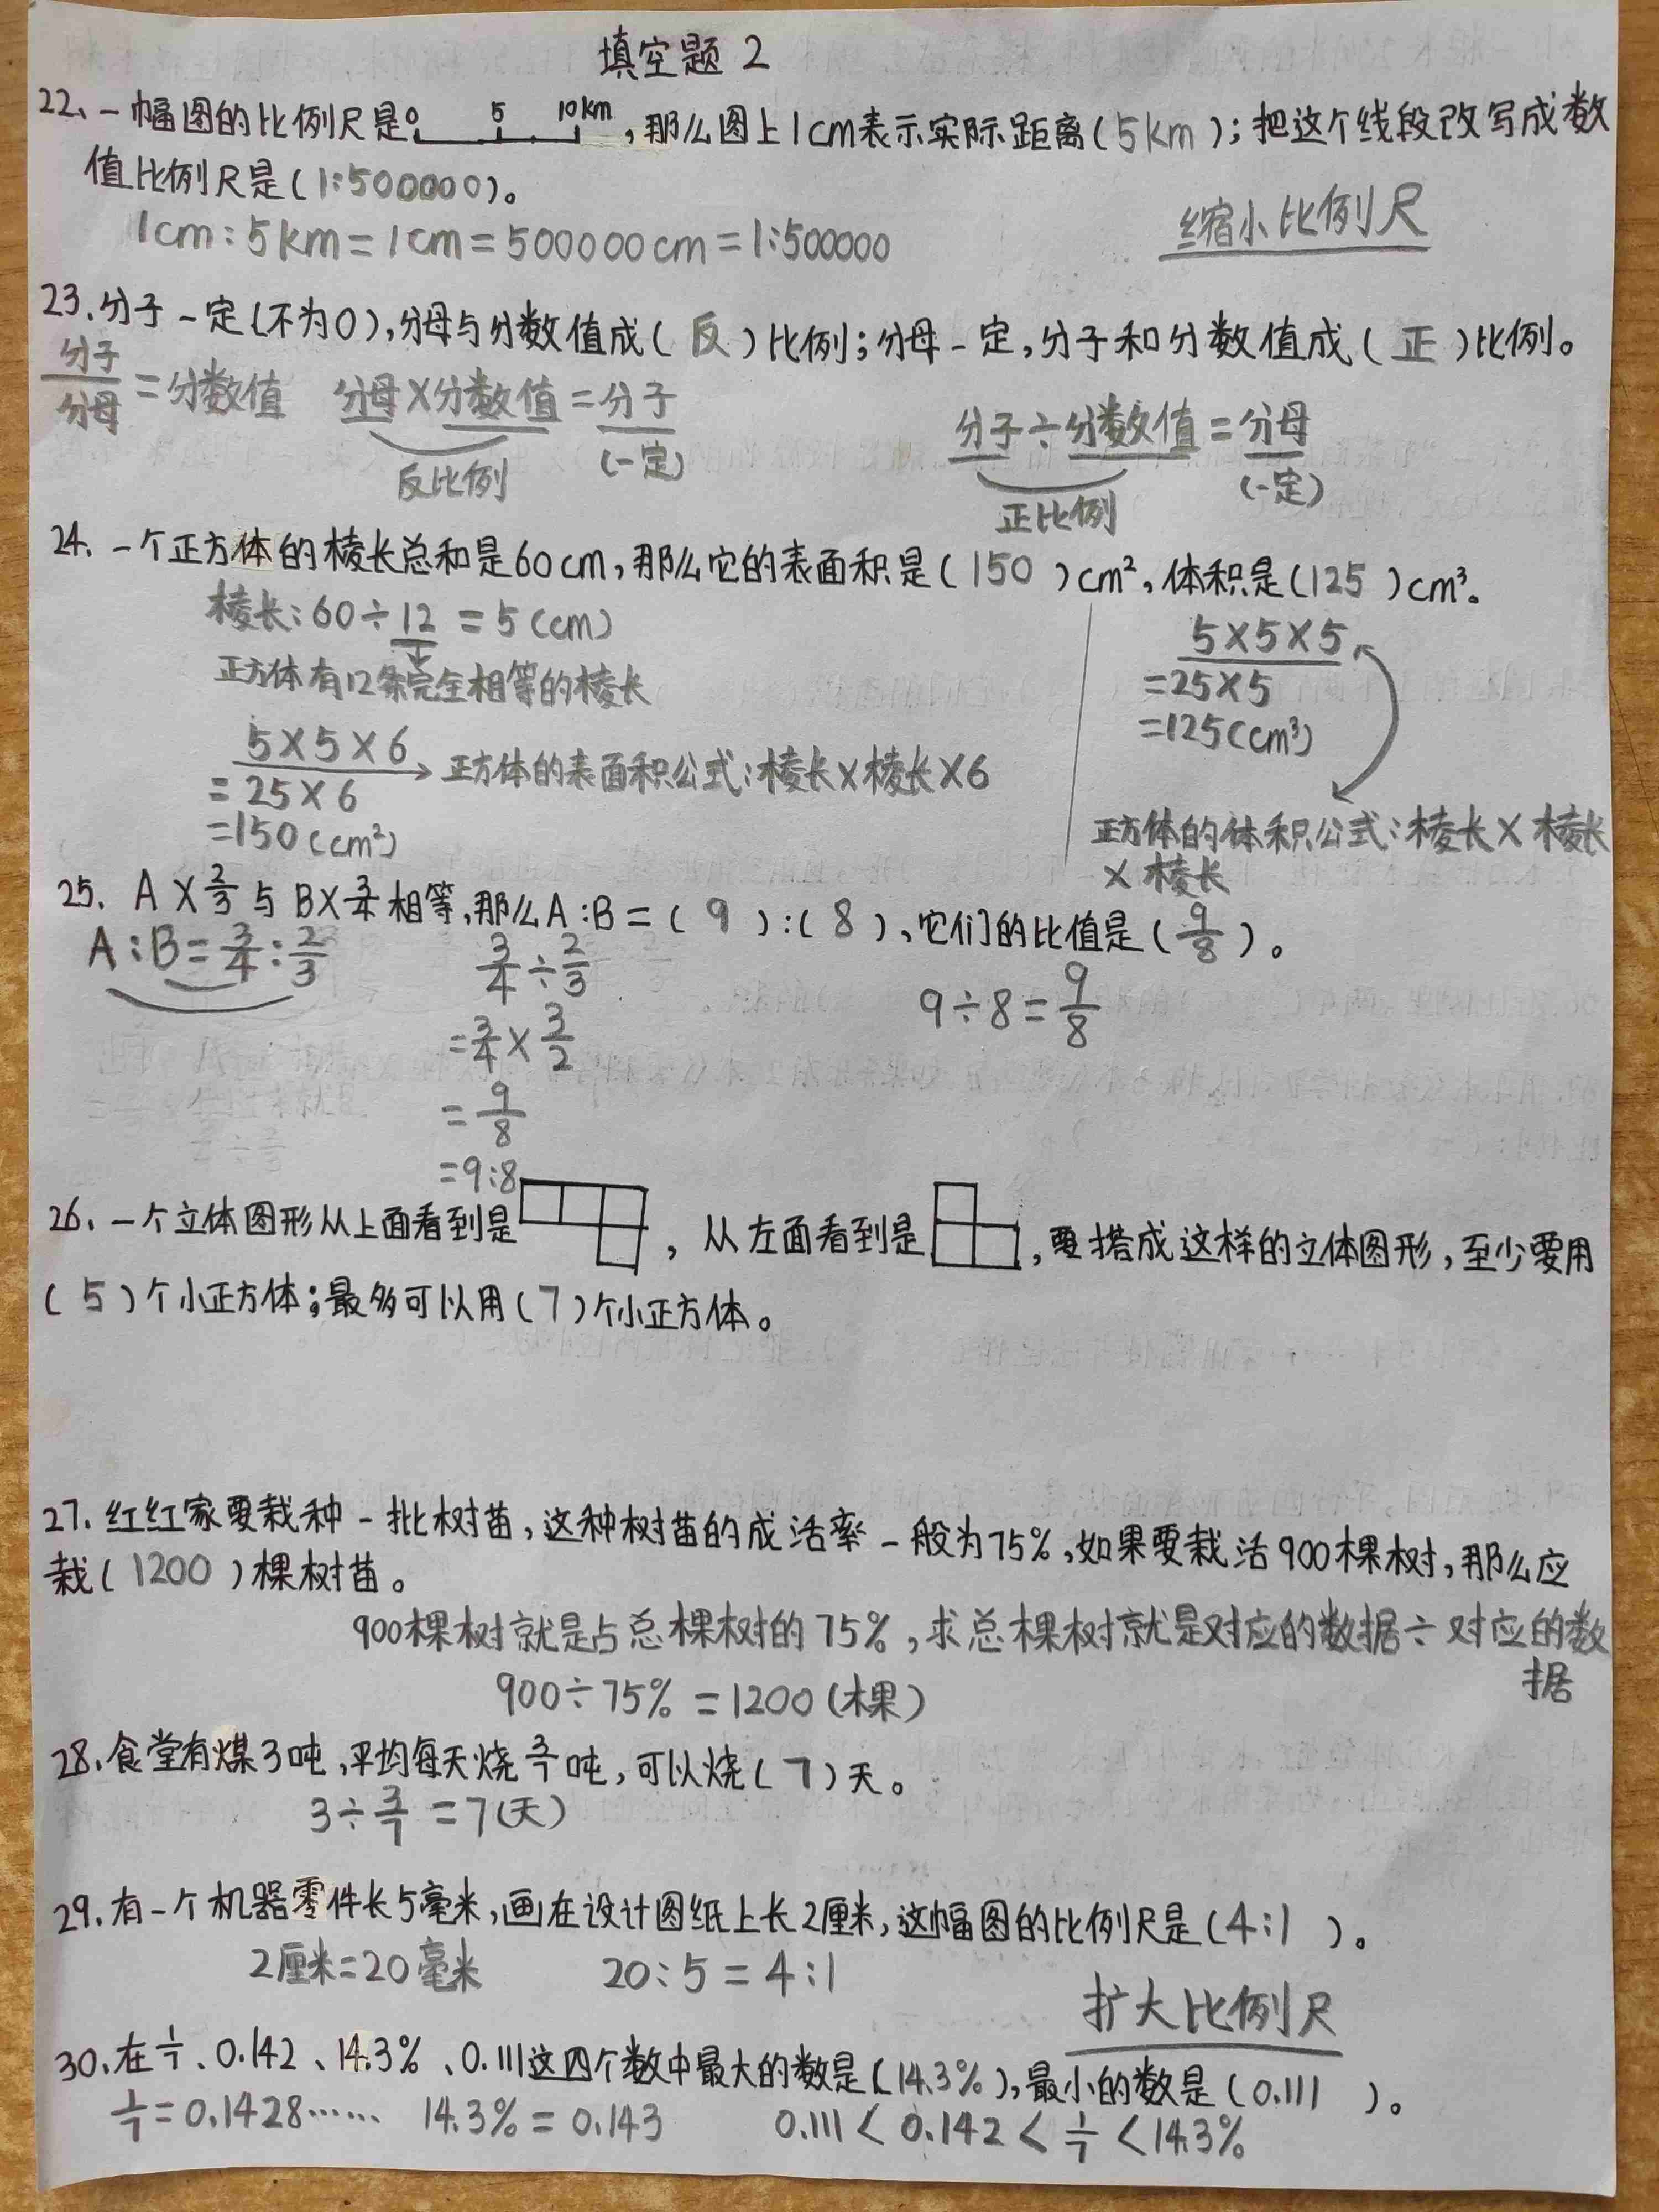 填空题 2
22、一幅图的比例尺是0 5 10km,那么图上1cm表示实际距离(5km);把这个线段改写成数
值比例尺是(1:500000)。
缩小比例尺
1cm:5km=1cm=500000cm=1:500000
23.分子一定(不为0),分母与分数值成(反)比例;分母一定,分子和分数值成(正)比例。
分子/分母=分数值 分母×分数值=分子 分子÷分数值=分母
反比例 (一定) 正比例 (一定)
24、一个正方体的棱长总和是60cm,那么它的表面积是(150)cm²,体积是(125)cm³。
棱长:60÷12=5(cm)
正方体有12条完全相等的棱长
5×5×6
=25×6
=150(cm²)
正方体的表面积公式:棱长×棱长×6
5×5×5
=25×5
=125(cm³)
正方体的体积公式:棱长×棱长
×棱长
25、A×2/3与B×3/4相等,那么A:B=(9):(8),它们的比值是(9/8)。
A:B=3/4:2/3
3/4÷2/3
=3/4×3/2
=9/8
=9:8
9÷8=9/8
26、一个立体图形从上面看到是,从左面看到是,要搭成这样的立体图形,至少要用
(5)个小正方体;最多可以用(7)个小正方体。
27.红红家要栽种一批树苗,这种树苗的成活率一般为75%,如果要栽活900棵树,那么应
栽(1200)棵树苗。
900棵树就是占总棵树的75%,求总棵树就是对应的数据÷对应的数
据
900÷75%=1200(棵)
28.食堂有煤3吨,平均每天烧3/7吨,可以烧(7)天。
3÷3/7=7(天)
29.有一个机器零件长5毫米,画在设计图纸上长2厘米,这幅图的比例尺是(4:1)。
2厘米=20毫米 20:5=4:1
扩大比例尺
30.在1/7、0.142、14.3%、0.111这四个数中最大的数是(14.3%),最小的数是(0.111)。
1/7=0.1428…… 14.3%=0.143 0.111<0.142<1/7<14.3%